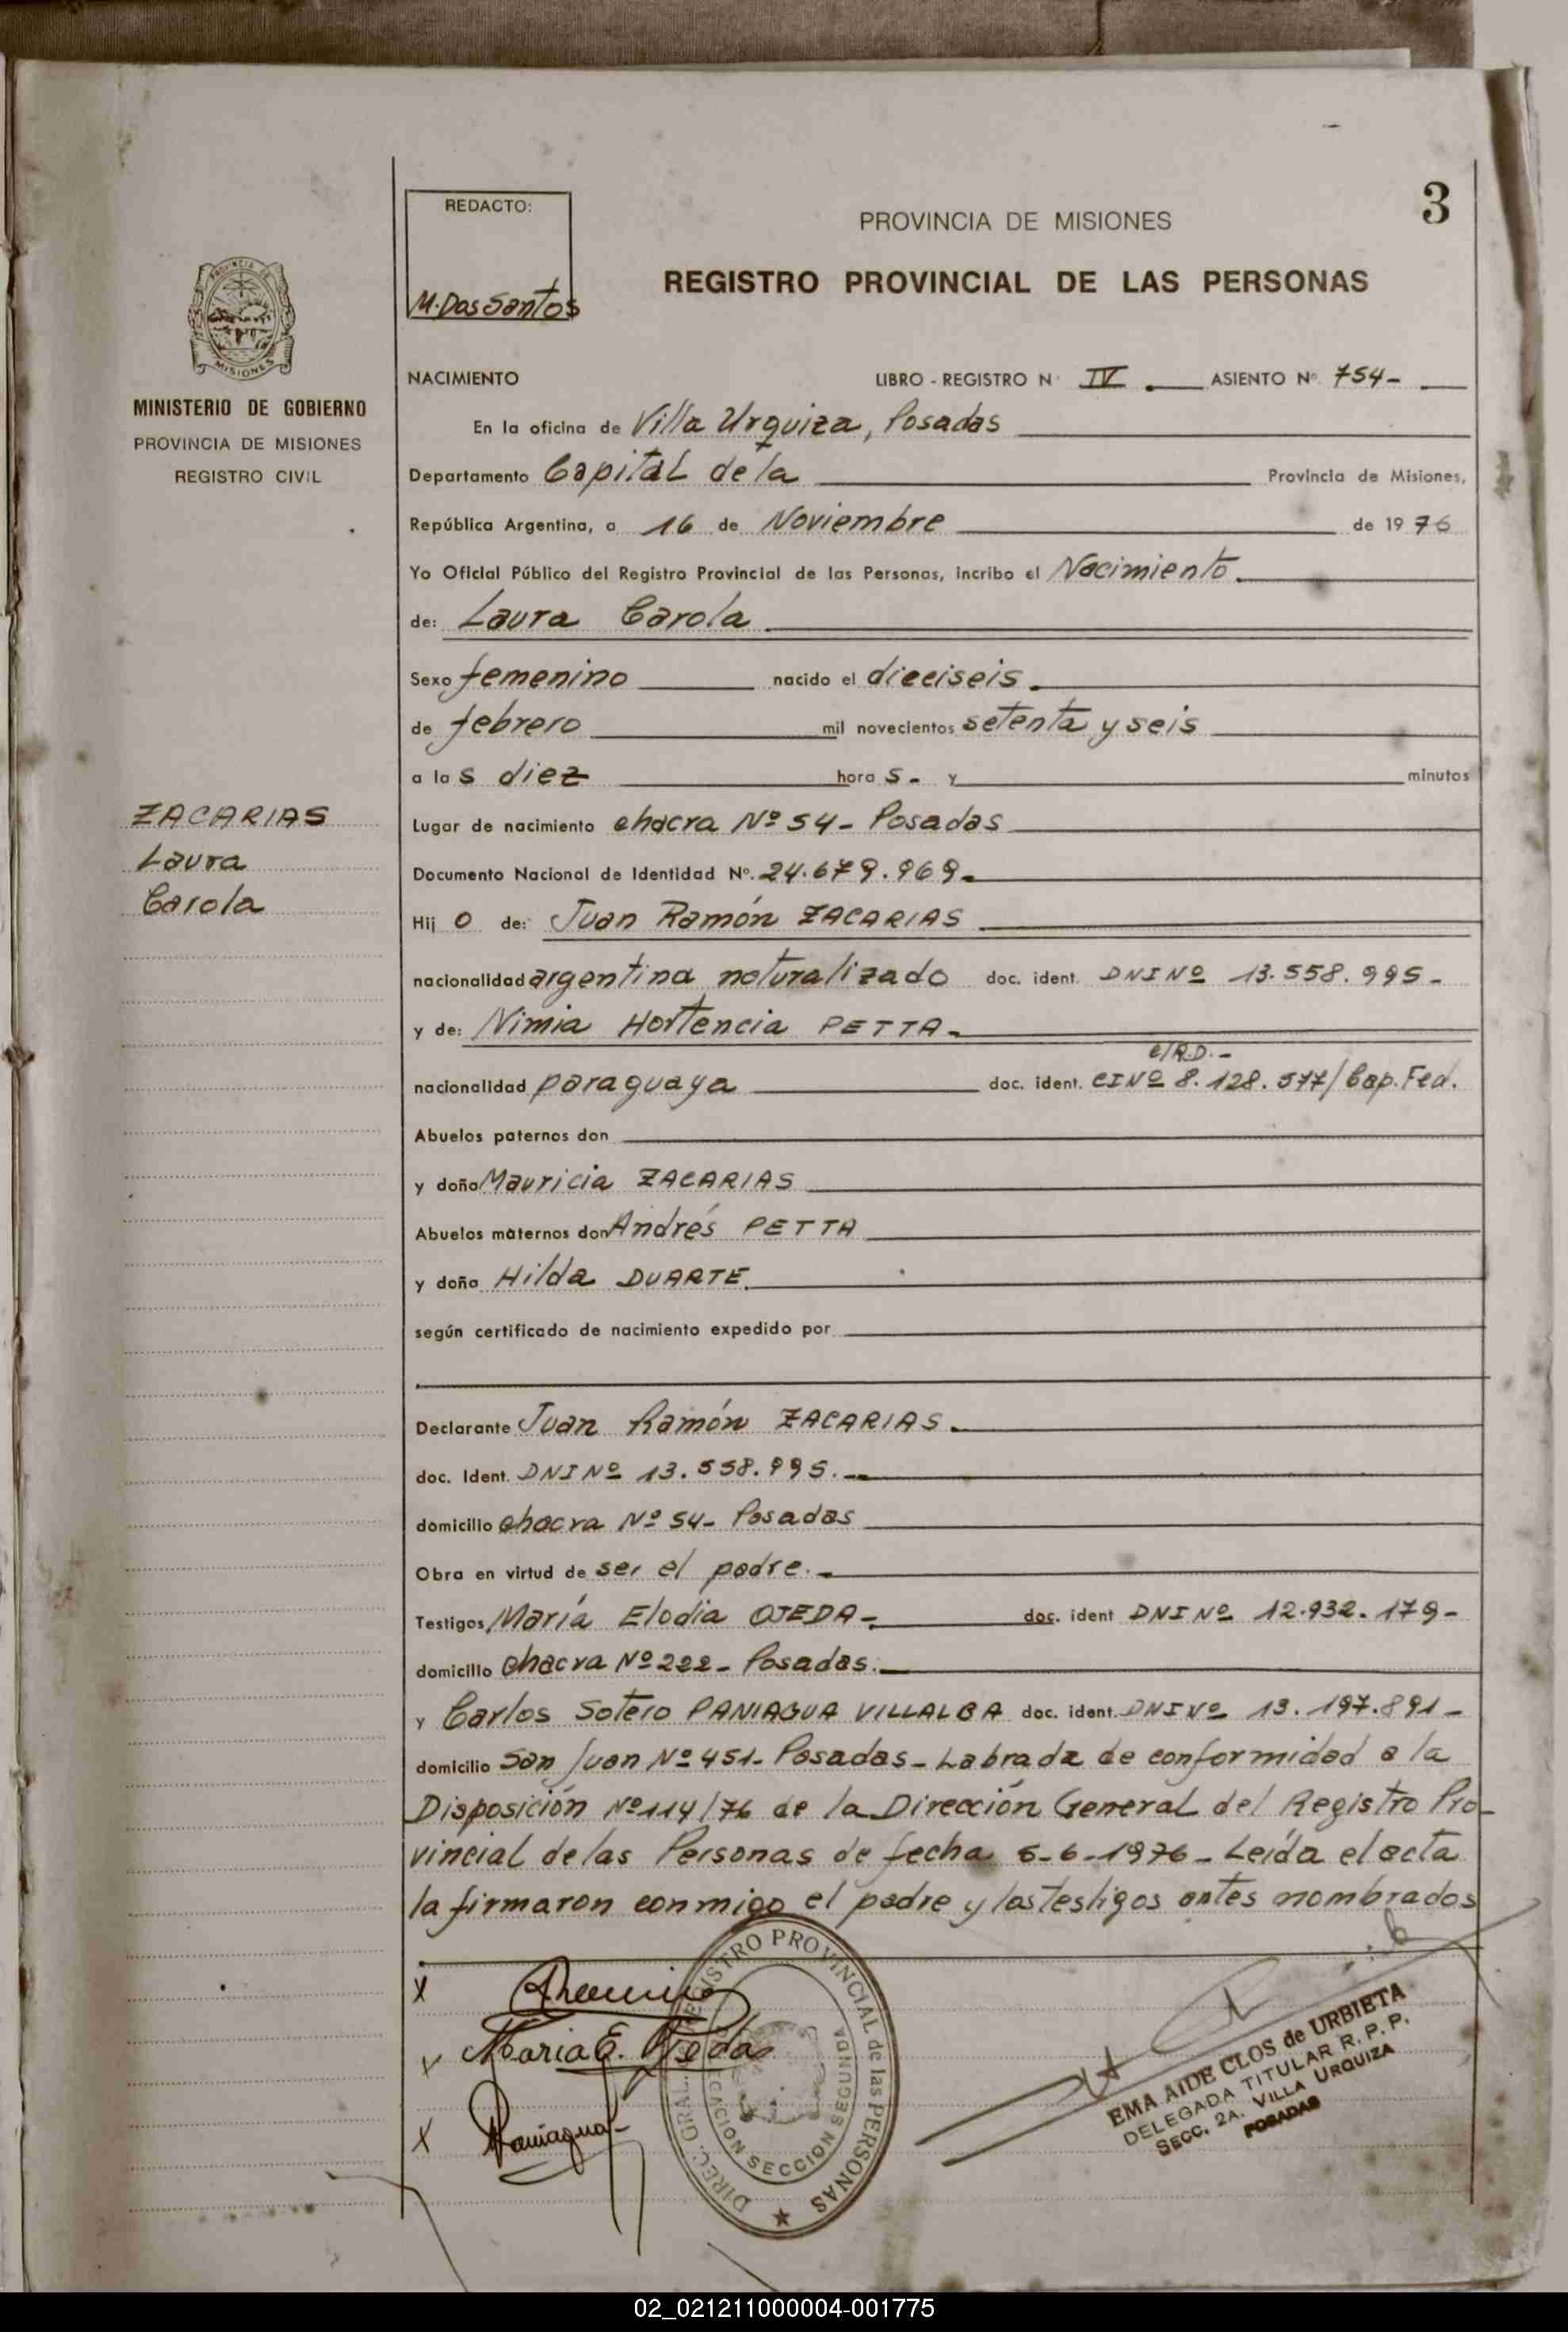 3
REDACTO:
M. Dos Santos
PROVINCIA DE MISIONES
REGISTRO PROVINCIAL DE LAS PERSONAS
PROVINCIA DE
MISIONES
MINISTERIO DE GOBIERNO
PROVINCIA DE MISIONES
REGISTRO CIVIL
NACIMIENTO LIBRO - REGISTRO N° IV. ASIENTO N° 754-
En la oficina de Villa Urquiza, Posadas
Departamento Capital de la Provincia de Misiones,
República Argentina, a 16 de Noviembre de 1976
Yo Oficial Público del Registro Provincial de las Personas, incribo el Nacimiento.
de: Laura Carola
Sexo femenino nacido el dieciseis.
de febrero mil novecientos setenta y seis
a las diez horas - y minutos
ZACARIAS
Laura
Carola
Lugar de nacimiento chacra Nº 54- Posadas
Documento Nacional de Identidad Nº. 24.679.969.
Hijo de: Juan Ramón ZACARIAS
nacionalidad argentina naturalizado doc. ident. DNI Nº 13.558.995-
y de: Nimia Hortencia PETTA-
c/R.D.-
nacionalidad paraguaya doc. ident. CI Nº 8.128.577/Cap. Fed.
Abuelos paternos don
y doña Mauricia ZACARIAS
Abuelos maternos don Andrés PETTA
y doña Hilda DUARTE.
según certificado de nacimiento expedido por
Declarante Juan Ramón ZACARIAS.
doc. Ident. DNI Nº 13.558.995.-
domicilio chacra Nº 54- Posadas
Obra en virtud de ser el padre.-
Testigos María Elodia OJEDA- doc. ident DNI Nº 12.932.179-
domicilio chacra Nº 222- Posadas.
y Carlos Sotero PANIAGUA VILLALBA doc. ident. DNI Nº 13.197.891-
domicilio San Juan Nº 451- Posadas- Labrada de conformidad a la
Disposición Nº 114/76 de la Dirección General del Registro Pro-
vincial de las Personas de fecha 5-6-1976- Leída el acta
la firmaron conmigo el padre y los testigos antes nombrados
X
María E. Ojeda
X Paniagua
DIREC. GRAL. REGISTRO PROVINCIAL de las PERSONAS
SECCION SEGUNDA
EMA AIDE CLOS de URBIETA
DELEGADA TITULAR R. P. P.
SECC. 2A. VILLA URQUIZA
POSADAS
02_021211000004-001775